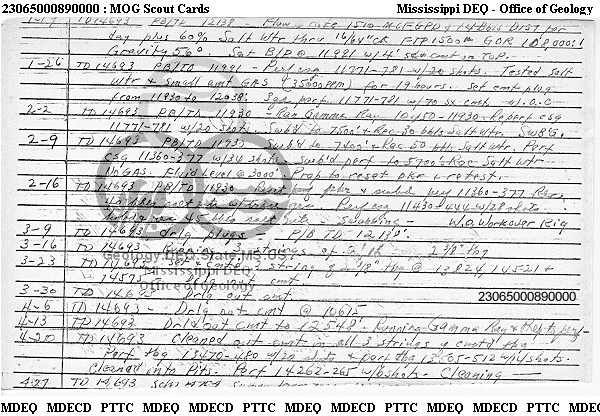 23065000890000 : MOG Scout Cards
Mississippi DEQ - Office of Geology
TD 14693 PB/TD 12138 - Flow rate 1510 MCFGPD & 14 Bbls DIST per
day plus 60% Salt Wtr thru 16/64" ck FTP 1500# GOR 108,000:1
Gravity 56°. Set B/P @ 11991 w/4' cmt on top.
1-26 TD 14693 PB/TD 11991 - Perf csg 11771-781 w/20 shots. Tested Salt
wtr & small amt GAS (35000 PPM) for 19 hours. set cmt plug
from 11930 to 12038. Sqz perf 11771-781 w/70 sx cmt. W.O.C.
2-2 TD 14693 PB/TD 11930 - Ran Gamma Ray 10450-11930. Reperf csg
11771-781 w/20 shots Swb'd to 7500' & Rec 30 bbls Salt Wtr. SWB'G.
2-9 TD 14693 PB/TD 11930 Swb'd to 7400' & Rec 50 bbl Salt Wtr. Perf
csg 11360-377 w/34 shots Swb'd perf to 5700'. Rec Salt Wtr
No GAS. Fluid Level @ 3000' Prep to reset pkr & retest.
2-16 TD 14693 PB/TD 11930 pkr & swbd perf 11360-377 Rec
Perf csg 11430-444 w/28 shots
45 Bbls salt wtr - Swabbing - W.O. Workover Rig
3-9 TD 14693 drlg plugs - P/B TD 12138'.
3-16 TD 14693 Running 3 strings of 2 7/8" tbg
3-23 TD 14693 Set & Cmtd 3 string of 2 7/8" tbg @ 13824, 14521 &
14575
Mississippi DEQ
Office of Geology
23065000890000
3-30 TD 14693 - Drlg out cmt
4-6 TD 14693 - Drlg out cmt @ 10615
4-13 TD 14693 Drld out cmt to 12548'. Running Gamma Ray & Prep to perf -
4-20 TD 14693 Cleaned out cmt in all 3 strings of cmtd tbg
Perf tbg 13470-480 w/20 shots & perf tbg 13505-512 w/14 shots.
Cleaned into Pits. Perf 14262-265 w/6 shots - Cleaning
4-27 TD 14693
MDEQ MDECD PTTC MDEQ MDECD PTTC MDEQ MDECD PTTC MDEQ MDECD PTTC MDEQ MDECD